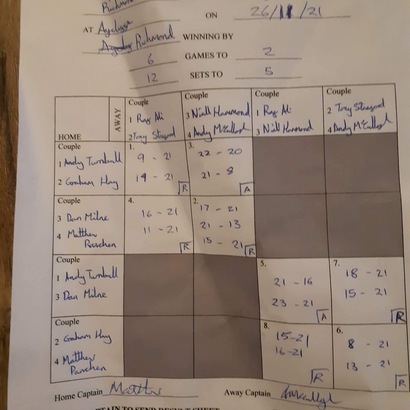 ON 26/11/21
AT
Richmond WINNING BY
6 GAMES TO 2
12 SETS TO 5
HOME
AWAY
Couple
1 Ray Ali
2 Tony Stagood
Couple
3 Niall Hammond
4 Andy McCullagh
Couple
1 Ray Ali
3 Niall Hammond
Couple
2 Tony Stagood
4 Andy McCullagh
Couple
1 Andy Turnbull
2 Graham Hay
1.
9 - 21
14 - 21
R
3.
22 - 20
21 - 8
A
Couple
3 Dan Milne
4 Matthew
4.
16 - 21
11 - 21
R
2.
17 - 21
21 - 13
15 - 21
R
Couple
1 Andy Turnbull
3 Dan Milne
5.
21 - 16
23 - 21
A
7.
18 - 21
15 - 21
R
Couple
2 Graham Hay
4 Matthew
8.
15 - 21
16 - 21
R
6.
8 - 21
13 - 21
R
Home Captain
Away Captain
TAIN TO SEND RESULT SHEET